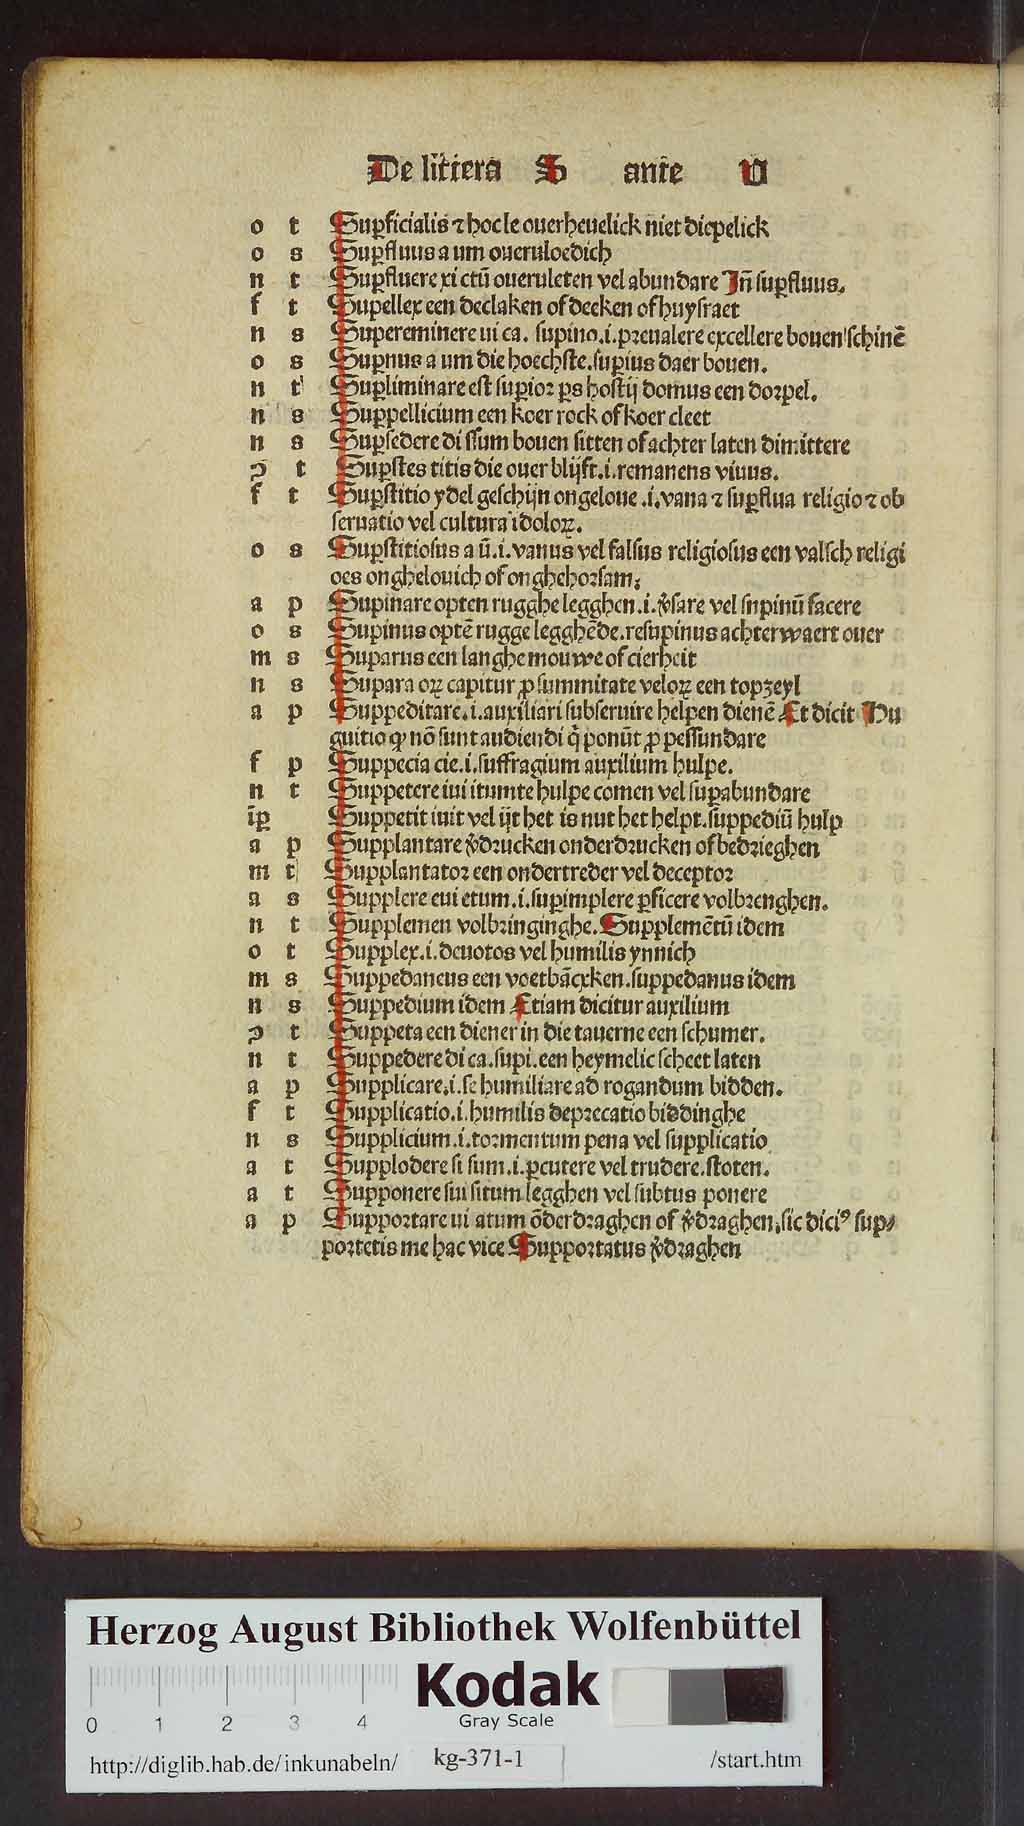 De littera S ante U
o t Suꝑficialis ⁊ hoc le ouerheuelick niet diepelick
o s Suꝑfluus a um oueruloedich
n t Suꝑfluere xi ctū oueruleten vel abundare Jn̄ suꝑfluus.
f t Supellex een declaken of decken of huysraet
n s Supereminere ui ca. supino .i. preualere excellere bouen schinē
o s Suꝑnus a um die hoechste. suꝑius daer bouen.
n t Suꝑliminare est suꝑior ꝑs hostij domus een dorpel.
n s Suꝑpellicium een koer rock of koer cleet
n s Suꝑsedere di ssum bouen sitten of achter laten dimittere
ꝯ t Suꝑstes titis die ouer blijft .i. remanens viuus.
f t Suꝑstitio ydel geschijn ongeloue .i. vana ⁊ suꝑflua religio ⁊ ob
seruatio vel cultura idoloꝝ.
o s Suꝑstitiosus a ū .i. vanus vel falsus religiosus een valsch religi
oes onghelouich of onghehorsam.
a p Supinare opten rugghe legghen .i. v̄sare vel supinū facere
o s Supinus optē rugge legghēde. resupinus achterwaert ouer
m s Suparus een langhe mouwe of cierheit
n s Supara oꝝ capitur ꝓ summitate veloꝝ een topzeyl
a p Suppeditare .i. auxiliari subseruire helpen dienē Et dicit Hu
guitio ꝙ nō sunt audiendi q̄ ponūt ꝓ pessundare
f p Suppecia cie .i. suffragium auxilium hulpe.
n t Suppetere iui itum te hulpe comen vel suꝑabundare
iꝑ Suppetit iuit vel ijt het is nut het helpt. suppediū hulp
a p Supplantare v̄drucken onderdrucken of bedrieghen
m t Supplantator een ondertreder vel deceptor
a s Supplere eui etum .i. suꝑimplere ꝑficere volbrenghen.
n t Supplemen volbringinghe. Supplemētū idem
o t Supplex .i. deuotos vel humilis ynnich
m s Suppedaneus een voetbācxken. suppedanus idem
n s Suppedium idem Etiam dicitur auxilium
ꝯ t Suppeta een diener in die tauerne een schumer.
n t Suppedere di ca. supi. een heymelic scheet laten
a p Supplicare .i. se humiliare ad rogandum bidden.
f t Supplicatio .i. humilis deprecatio biddinghe
n s Supplicium .i. tormentum pena vel supplicatio
a t Supplodere si sum .i. ꝑcutere vel trudere. stoten.
a t Supponere sui situm legghen vel subtus ponere
a p Supportare ui atum ōderdraghen of v̄draghen, sic diciꝰ sup⸗
portetis me hac vice Supportatus v̄draghen
Herzog August Bibliothek Wolfenbüttel
Kodak
Gray Scale
0 1 2 3 4
http://diglib.hab.de/inkunabeln/ kg-371-1 /start.htm